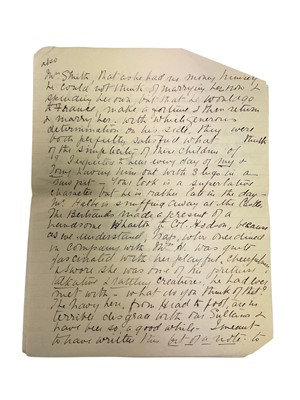 also
Mr Smith, that as he had no money himself
he could not think of marrying her now &
spending her own, but that he would go
to France, make a fortune & then return
& marry her - with which generous
determination on his side, they were
both perfectly satisfied what think
of the simplicity of these children of
I expected to hear every day of
Tony having him out with 3 legs in a
Your look is a superlative
character but he is rather late in the day
Mr is snuffing away at the
The made a present of a
handsome to Col. because
as we understand, Mary, who one
in company with Mrs R. was quite
fascinated with her playful, cheerfulness
& swore she was one of the prettiest
& creatures, he had ever
met with - what do you think of that?
The from head to foot, are in
terrible disgrace with our Sultana &
have been so a good while - I meant
to have written this but a note - to